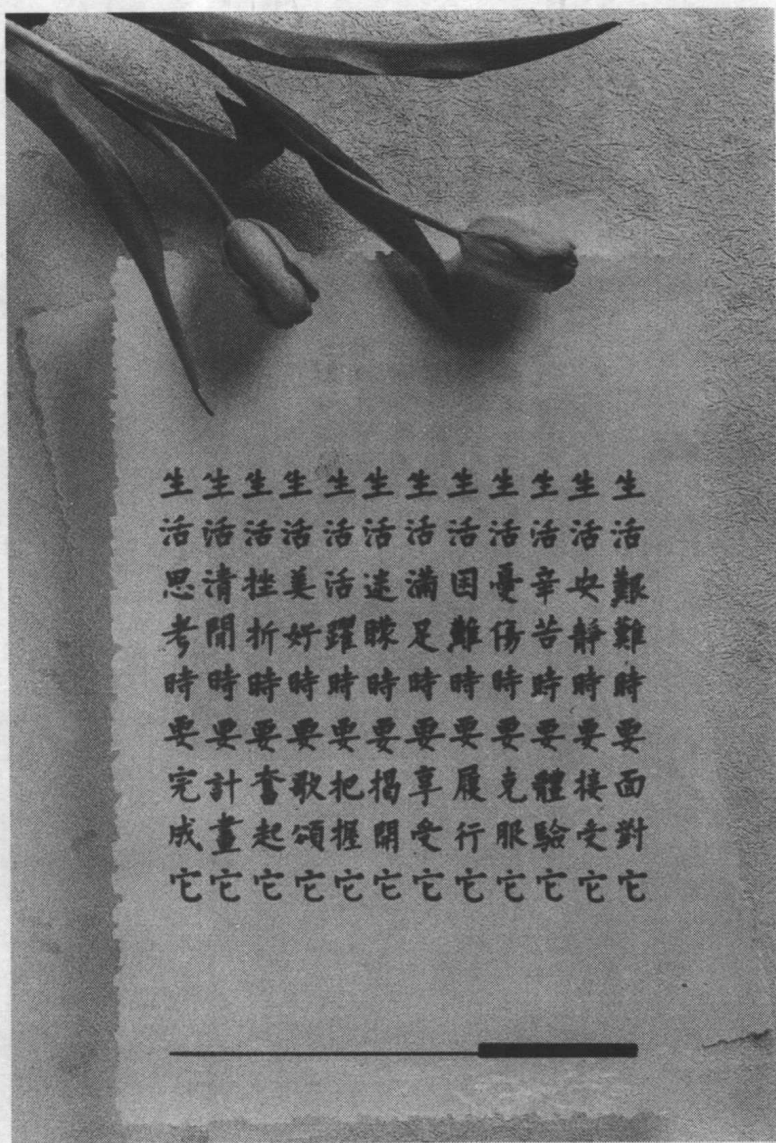 生活艱難時要面對它
生活安靜時要接受它
生活辛苦時要體驗它
生活憂傷時要克服它
生活困難時要履行它
生活滿足時要享受它
生活迷矇時要揭開它
生活活躍時要把握它
生活美好時要歌頌它
生活挫折時要奮起它
生活清閒時要計畫它
生活思考時要完成它